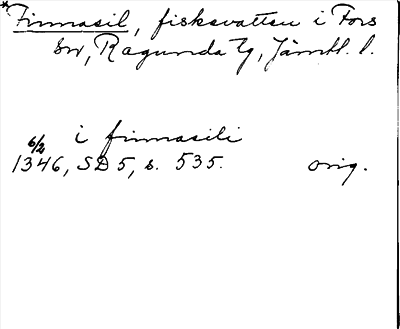 *Finnasil, fisksvatten i Fors
sn, Ragunda tg, Jämtl. l.
i finnasili
6/2
1346, SD 5, s. 535. orig.